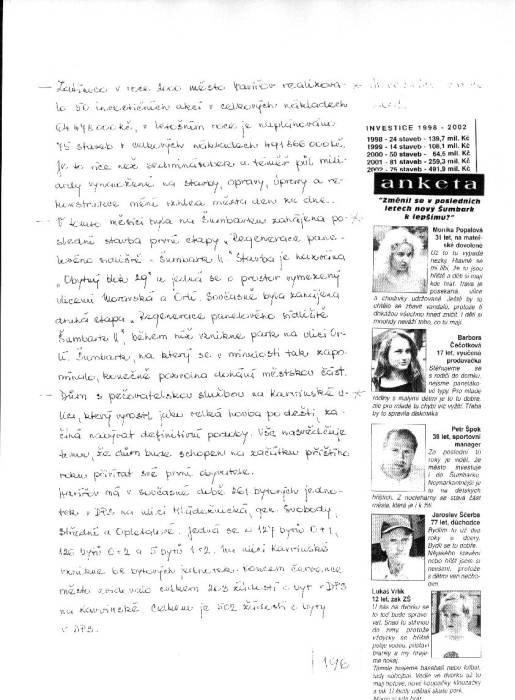 — Zatímco v roce 2000 město Havířov realizova-
lo 50 investičních akcí v celkových nákladech
64 448 000 Kč, v letošním roce je naplánováno
75 staveb v celkových nákladech 491 866 000 Kč.
Je to více než sedminásobek a téměř půl mili-
ardy vynaložené na stavby, opravy, úpravy a re-
konstrukce mění vzhled města den ze dne.
— V tomto měsíci byla na Šumbarku zahájena po-
slední stavba první etapy „Regenerace pane-
lového sídliště - Šumbark II". Stavba je nazvána
„Obytný blok 29" a jedná se o prostor vymezený
ulicemi Moravská a Orlí. Současně byla zahájena
druhá etapa „Regenerace panelového sídliště
Šumbark II", během níž vznikne park na ulici Or-
lí. Šumbark, na který se v minulosti tak zapo-
mínalo, konečně pozvolna dohání městskou část.
— Dům s pečovatelskou službou na Karvinské u-
lici, který vyrostl jako velká houba po dešti, za-
číná nabývat definitivní podoby. Vše nasvědčuje
tomu, že dům bude schopen na začátku příštího
roku přivítat své první obyvatele.
Havířov má v současné době 261 bytových jedno-
tek v DPS na ulici Mládežnická, gen. Svobody,
Střední a Opletalova. Jedná se o 127 bytů 0+1,
126 bytů 0+2 a 5 bytů 1+2. Na ulici Karvinské
vznikne bytových jednotek. Koncem července
město evidovalo celkem 203 žádostí o byt v DPS
na Karvinské. Celkem je 502 žádostí o byty
v DPS.
196
INVESTICE 1998 - 2002
1998 - 24 staveb - 139,7 mil. Kč
1999 - 14 staveb - 108,1 mil. Kč
2000 - 50 staveb - 64,5 mil. Kč
2001 - 81 staveb - 259,3 mil. Kč
2002 - 75 staveb - 491,9 mil. Kč
anketa
"Změnil se v posledních
letech nový Šumbark
k lepšímu?"
Monika Popalová
31 let, na mateř-
ské dovolené
Už to tu vypadá
hezky. Hlavně se
mi líbí, že tu jsou
hřiště a děti si mají
kde hrát, tráva je
posekaná, ulice
a chodníky udržované. Ještě by to
chtělo se zbavit vandalů, protože ti
dokážou všechno hned zničit. I děti si
mnohdy neváží toho, co tu mají.
Barbora
Čečotková
17 let, vyučená
prodavačka
Stěhujeme se
s rodiči do domku,
nejsme paneláko-
vé typy. Pro mladé
rodiny s malými dětmi je to tu dobré,
ale pro mladé tu chybí víc vyžití. Třeba
by to spravila diskotéka
Petr Špok
38 let, sportovní
manager
Za poslední tři
roky je vidět, že
město investuje
i do Šumbarku.
Nejmarkantnější je
to na dětských
hřištích. Z noclehárny se stává část
města, která je i k žití.
Jaroslav Ščerba
77 let, důchodce
Bydlím tu už dva
roky u dcery.
Bydlí se tu dobře.
Nějakého stavění
nebo hřišť jsem si
nevšiml, protože
s dětmi ven necho-
dím.
Lukáš Vrlík
12 let, žák ZŠ
U nás na dvorku se
to teď bude spravo-
vat. Snad tu stihnou
do zimy, protože
vždycky se hřiště
poleje vodou, polstaví
branky a my hraje-
me hokej.
Tamhle hrajeme baseball nebo fotbal,
tady nohejbal. Vedle ve dvorku už tu
mají hotové, nové houpačky, klouzačky
a tak. U školy udělali skate dráhu.
Mámo si kde hrát.